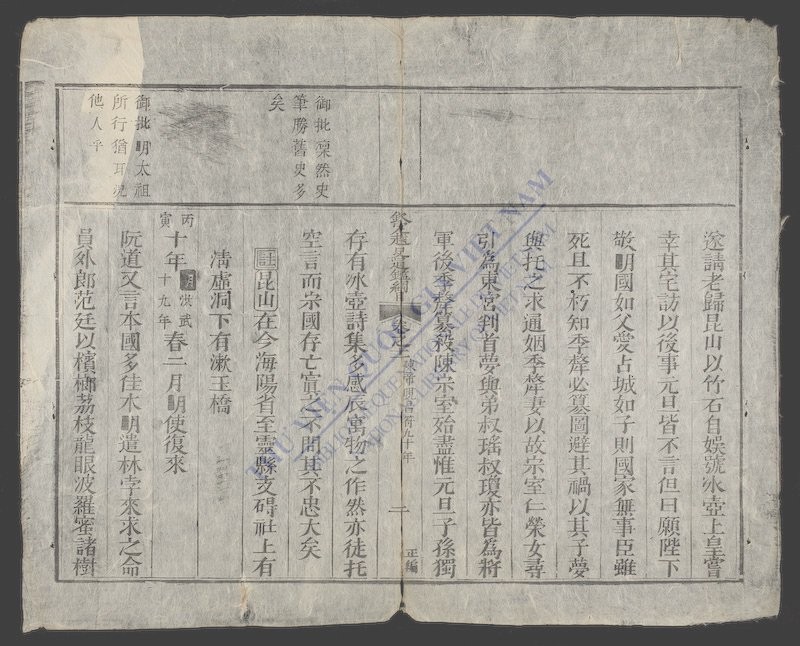 遂請老歸昆山以竹石自娛號冰壺上皇嘗
幸其宅訪以後事元旦皆不言但曰願陛下
敬明國如父愛占城如子則國家無事臣雖
死且不朽知季犛必篡圖避其禍以其子夢
與托之求通姻季犛妻以故宗室仁榮女尋
引為東宮判首夢與弟叔瑤叔瓊亦皆為將
軍後季犛篡殺陳宗室殆盡惟元旦子孫獨
御批凜然史
筆勝舊史多
矣
欽定越史通鑑綱目 卷之十一 陳廢帝昌符九十年 二 正編
存有冰壺詩集多感辰寓物之作然亦徒托
空言而宗國存亡寘之不問其不忠大矣
註昆山在今海陽省至靈縣支碍社上有
清虛洞下有漱玉橋
丙寅十年明洪武十九年春二月明使復來
御批明太祖
所行猶耳況
他人乎
阮道又言本國多佳木明遣林孛來求之命
員外郎范廷以檳榔荔枝龍眼波羅蜜諸樹
THƯ VIỆN QUỐC GIA VIỆT NAM
BIBLIOTHÈQUE NATIONALE DU VIETNAM
NATIONAL LIBRARY OF VIETNAM